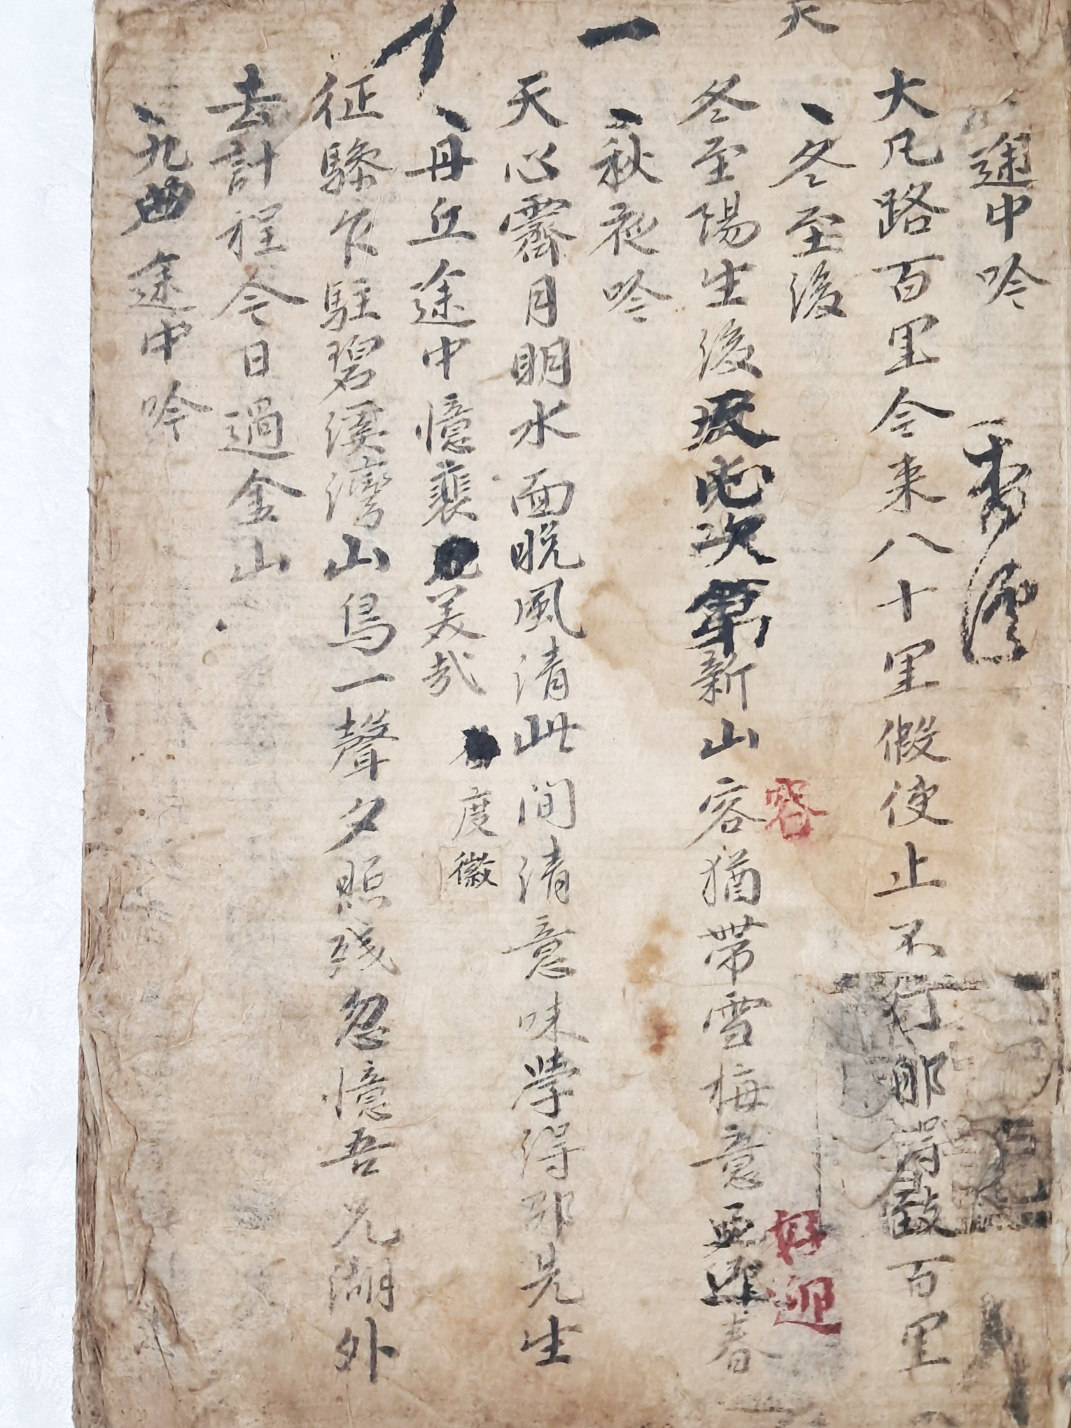 天
途中吟
大凡路百里今来八十里假使止不行那得致百里
冬至後
冬至陽生後 次第新山容猶帶雪梅意 迎春
容
好迎
一
秋夜吟
天心霽月明水面晩風清此間清意味学得邵先生
丹丘途中憶裴 美哉
度徽
征驂乍駐碧溪灣山鳥一聲夕照残忽憶吾兄湖外
去計程今日過金山
九曲途中吟